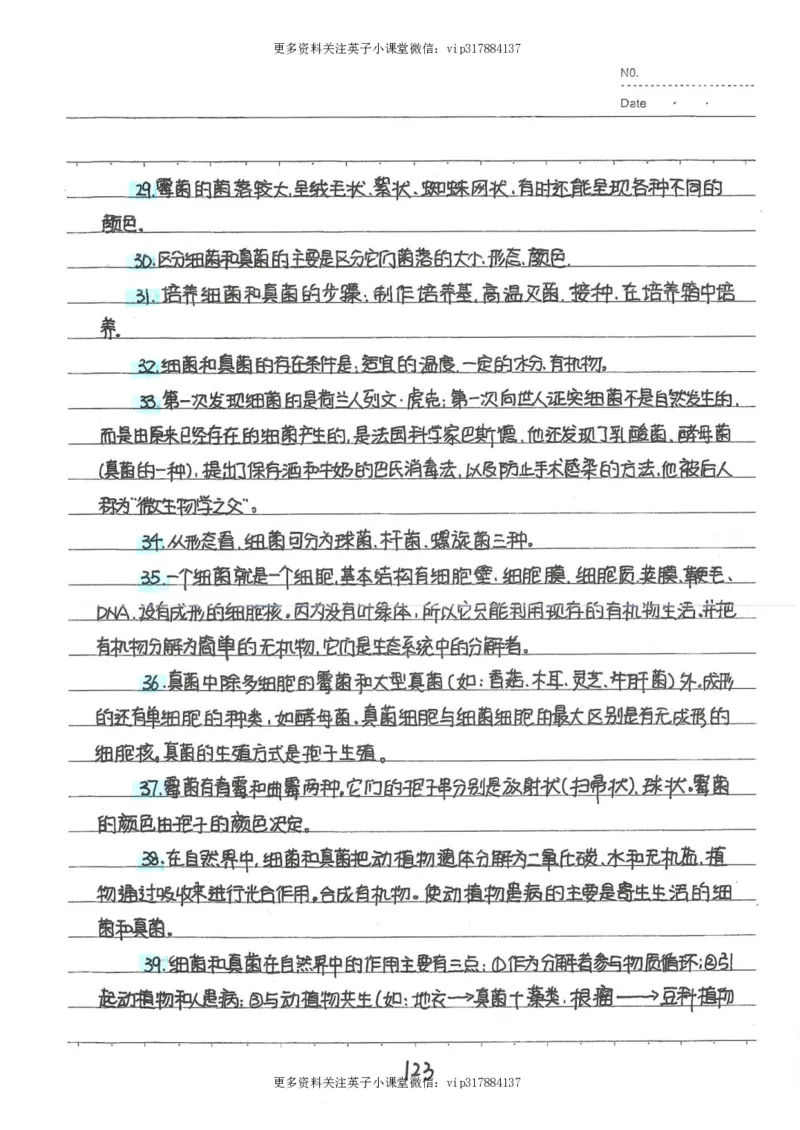 更多资料关注英子小课堂微信：vip317884137
NO.
Date
29.霉菌的菌落较大,呈绒毛状、絮状、蜘蛛网状,有时还能呈现各种不同的
颜色。
30.区分细菌和真菌的主要是区分它们菌落的大小、形态、颜色.
31.培养细菌和真菌的步骤:制作培养基,高温灭菌,接种,在培养箱中培
养。
32.细菌和真菌的存在条件是:适宜的温度,一定的水分、有机物。
33.第一次发现细菌的是荷兰人列文·虎克;第一次向世人证实细菌不是自然发生的,
而是由原来已经存在的细菌产生的,是法国科学家巴斯德,他还发现了乳酸菌、酵母菌
(真菌的一种),提出了保存酒和牛奶的巴氏消毒法,以及防止手术感染的方法,他被后人
称为“微生物学之父”。
34.从形态看,细菌可分为球菌、杆菌、螺旋菌三种。
35.一个细菌就是一个细胞,基本结构有细胞壁、细胞膜、细胞质、荚膜、鞭毛、
DNA,没有成形的细胞核。因为没有叶绿体,所以它只能利用现存的有机物生活,并把
有机物分解为简单的无机物,它们是生态系统中的分解者。
36.真菌中除多细胞的霉菌和大型真菌(如:香菇、木耳、灵芝、牛肝菌)外,成形
的还有单细胞的种类,如酵母菌。真菌细胞与细菌细胞的最大区别是有无成形的
细胞核。真菌的生殖方式是孢子生殖。
37.霉菌有青霉和曲霉两种。它们的孢子串分别是放射状(扫帚状)、球状。霉菌
的颜色由孢子的颜色决定。
38.在自然界中,细菌和真菌把动植物遗体分解为二氧化碳、水和无机盐,植
物通过吸收来进行光合作用。合成有机物。使动植物患病的主要是寄生生活的细
菌和真菌。
39.细菌和真菌在自然界中的作用主要有三点:①作为分解者参与物质循环;②引
起动植物和人患病;③与动植物共生(如:地衣→真菌+藻类,根瘤→豆科植物
123
更多资料关注英子小课堂微信：vip317884137